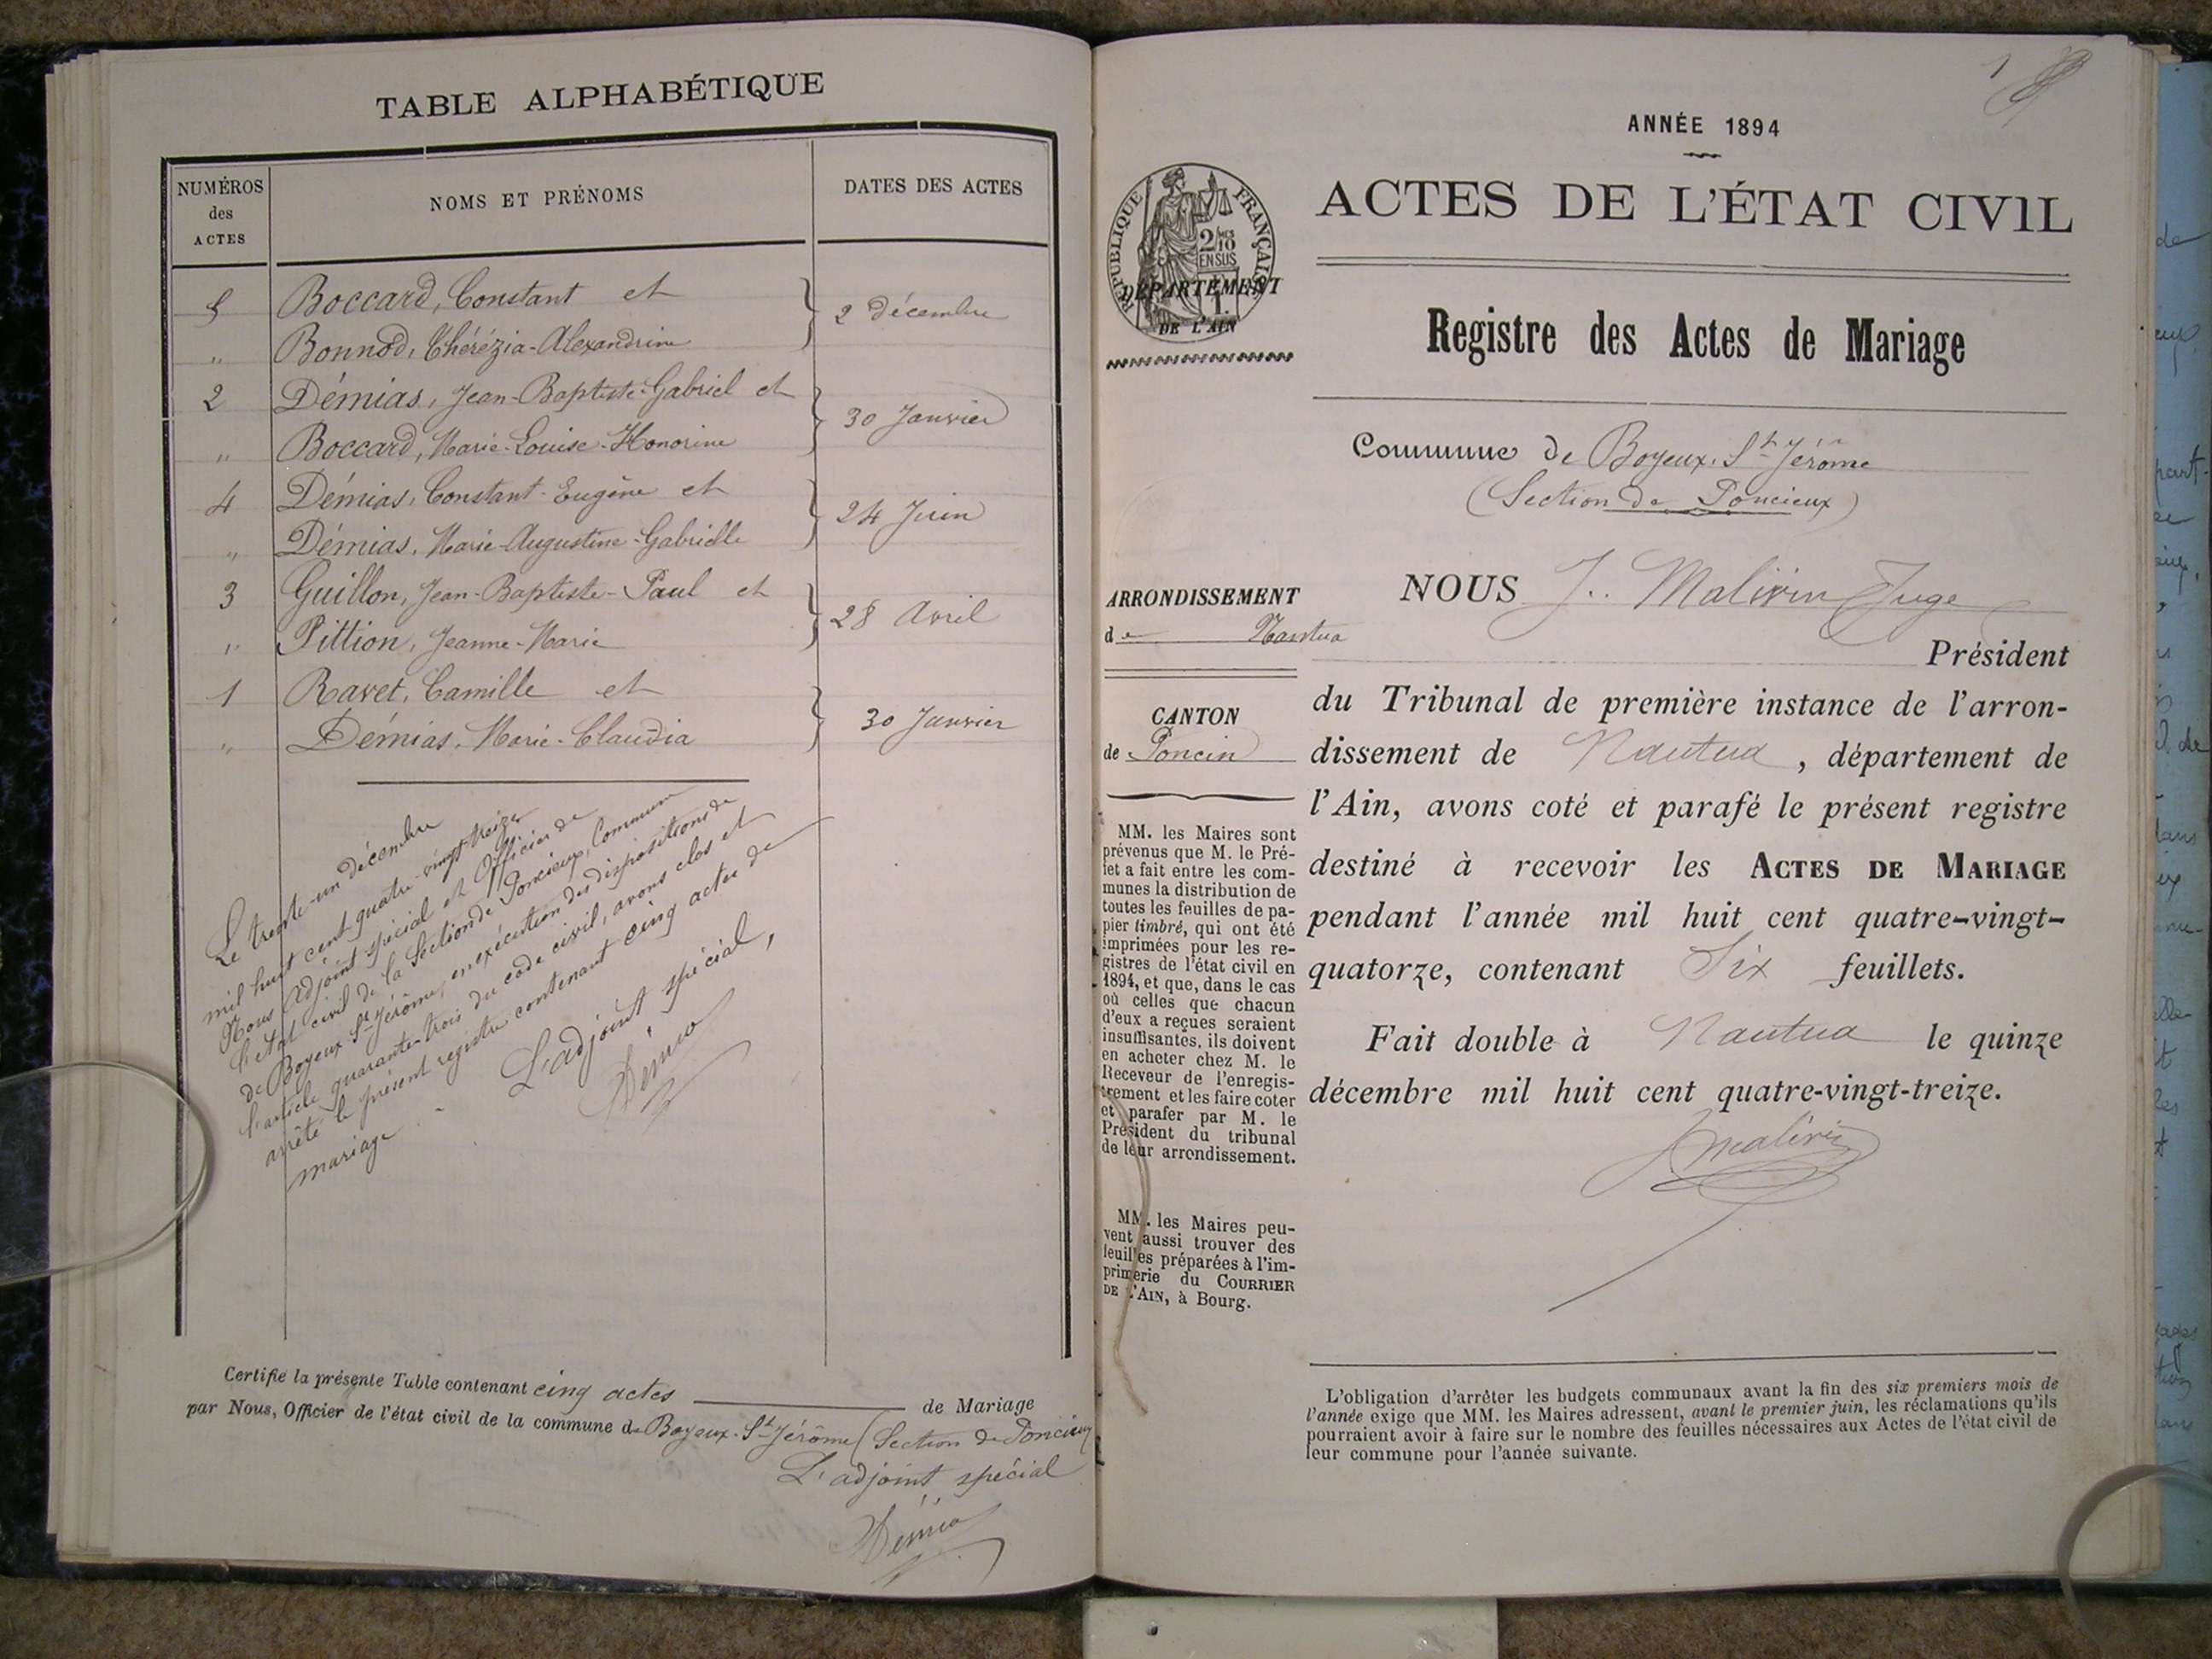 TABLE ALPHABÉTIQUE
NUMÉROS des ACTES
NOMS ET PRÉNOMS
DATES DES ACTES
5 Boccard, Constant et
„ Bonnod, Chérézia-Alexandrine
2 décembre
2 Démias, Jean-Baptiste-Gabriel et
„ Boccard, Marie-Louise-Honorine
30 Janvier
4 Démias, Constant-Eugène et
„ Démias, Marie-Augustine-Gabrielle
24 Juin
3 Guillon, Jean-Baptiste-Paul et
„ Pittion, Jeanne-Marie
28 Avril
1 Ravet, Camille et
„ Démias, Marie-Claudia
30 Janvier
Le trente-un décembre
mil huit cent quatre-vingt-treize
Nous Adjoint spécial et Officier de
l'état civil de la Section de Poncieux, Commune
de Boyeux St Jérôme, en exécution des dispositions de
l'article quarante-trois du code civil, avons clos et
arrêté le présent registre contenant cinq actes de
mariage.
L'adjoint spécial,
Démias
Certifie la présente Table contenant cinq actes de Mariage
par Nous, Officier de l'état civil de la commune de Boyeux-St-Jérôme (Section de Poncieux
L'adjoint spécial
Démias
1
ANNÉE 1894
ACTES DE L'ÉTAT CIVIL
RÉPUBLIQUE FRANÇAISE
2/10 MES
EN SUS
DÉPARTEMENT
DE L'AIN
Registre des Actes de Mariage
Commune de Boyeux-St-Jérôme
(Section de Poncieux)
ARRONDISSEMENT
de Nantua
CANTON
de Poncin
MM. les Maires sont
prévenus que M. le Pré-
fet a fait entre les com-
munes la distribution de
toutes les feuilles de pa-
pier timbré, qui ont été
imprimées pour les re-
gistres de l'état civil en
1894, et que, dans le cas
où celles que chacun
d'eux a reçues seraient
insuffisantes, ils doivent
en acheter chez M. le
Receveur de l'enregis-
trement et les faire coter
et parafer par M. le
Président du tribunal
de leur arrondissement.
MM. les Maires peu-
vent aussi trouver des
feuilles préparées à l'im-
primerie du COURRIER
DE L'AIN, à Bourg.
NOUS J. Malivin Juge
Président
du Tribunal de première instance de l'arron-
dissement de Nantua, département de
l'Ain, avons coté et parafé le présent registre
destiné à recevoir les ACTES DE MARIAGE
pendant l'année mil huit cent quatre-vingt-
quatorze, contenant Six feuillets.
Fait double à Nantua le quinze
décembre mil huit cent quatre-vingt-treize.
J Malivin
L'obligation d'arrêter les budgets communaux avant la fin des six premiers mois de
l'année exige que MM. les Maires adressent, avant le premier juin, les réclamations qu'ils
pourraient avoir à faire sur le nombre des feuilles nécessaires aux Actes de l'état civil de
leur commune pour l'année suivante.